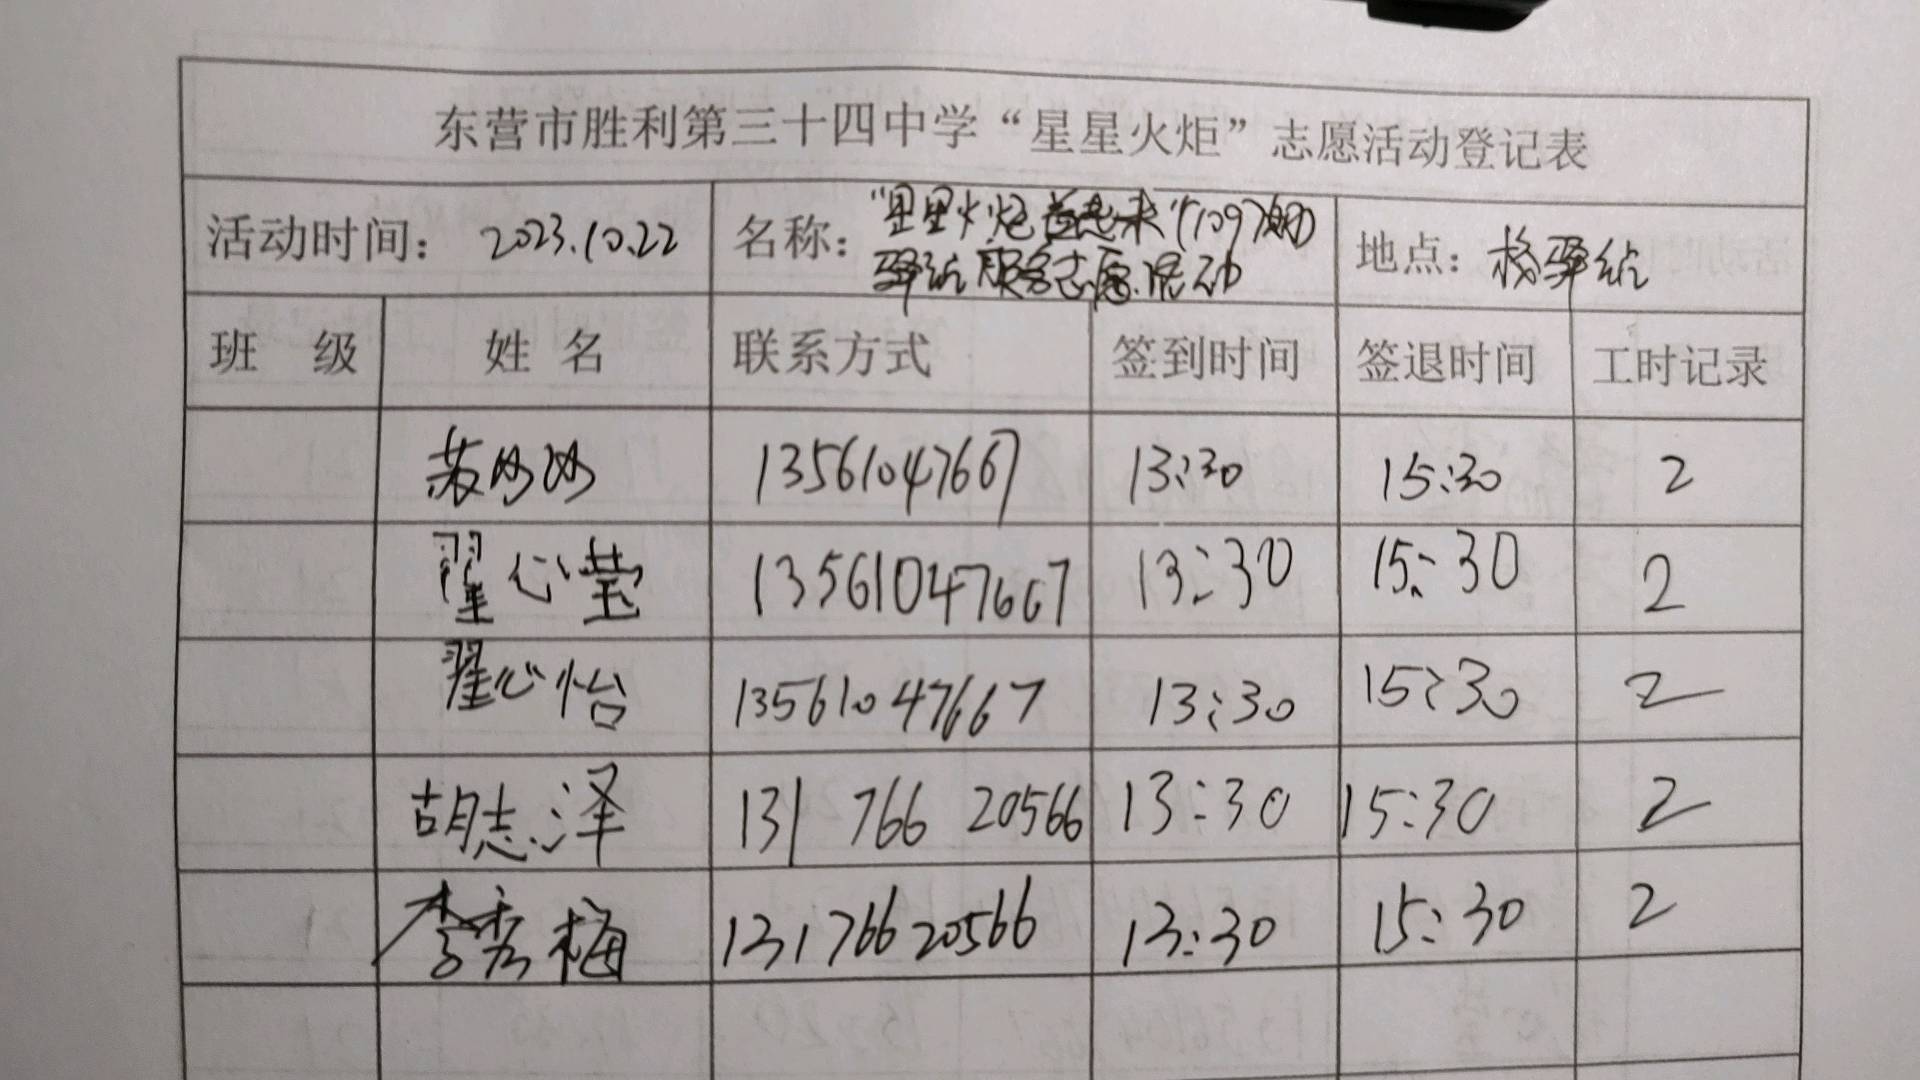 东营市胜利第三十四中学“星星火炬”志愿活动登记表
活动时间：2023.10.22
名称：“星星火炬
驿站服务志愿活动
地点：驿站
班 级 姓 名 联系方式 签到时间 签退时间 工时记录
苏沙沙 13561047667 13:30 15:30 2
翟心莹 13561047667 13:30 15:30 2
翟心怡 13561047667 13:30 15:30 2
胡志泽 131 766 20566 13:30 15:30 2
李秀梅 13176620566 13:30 15:30 2